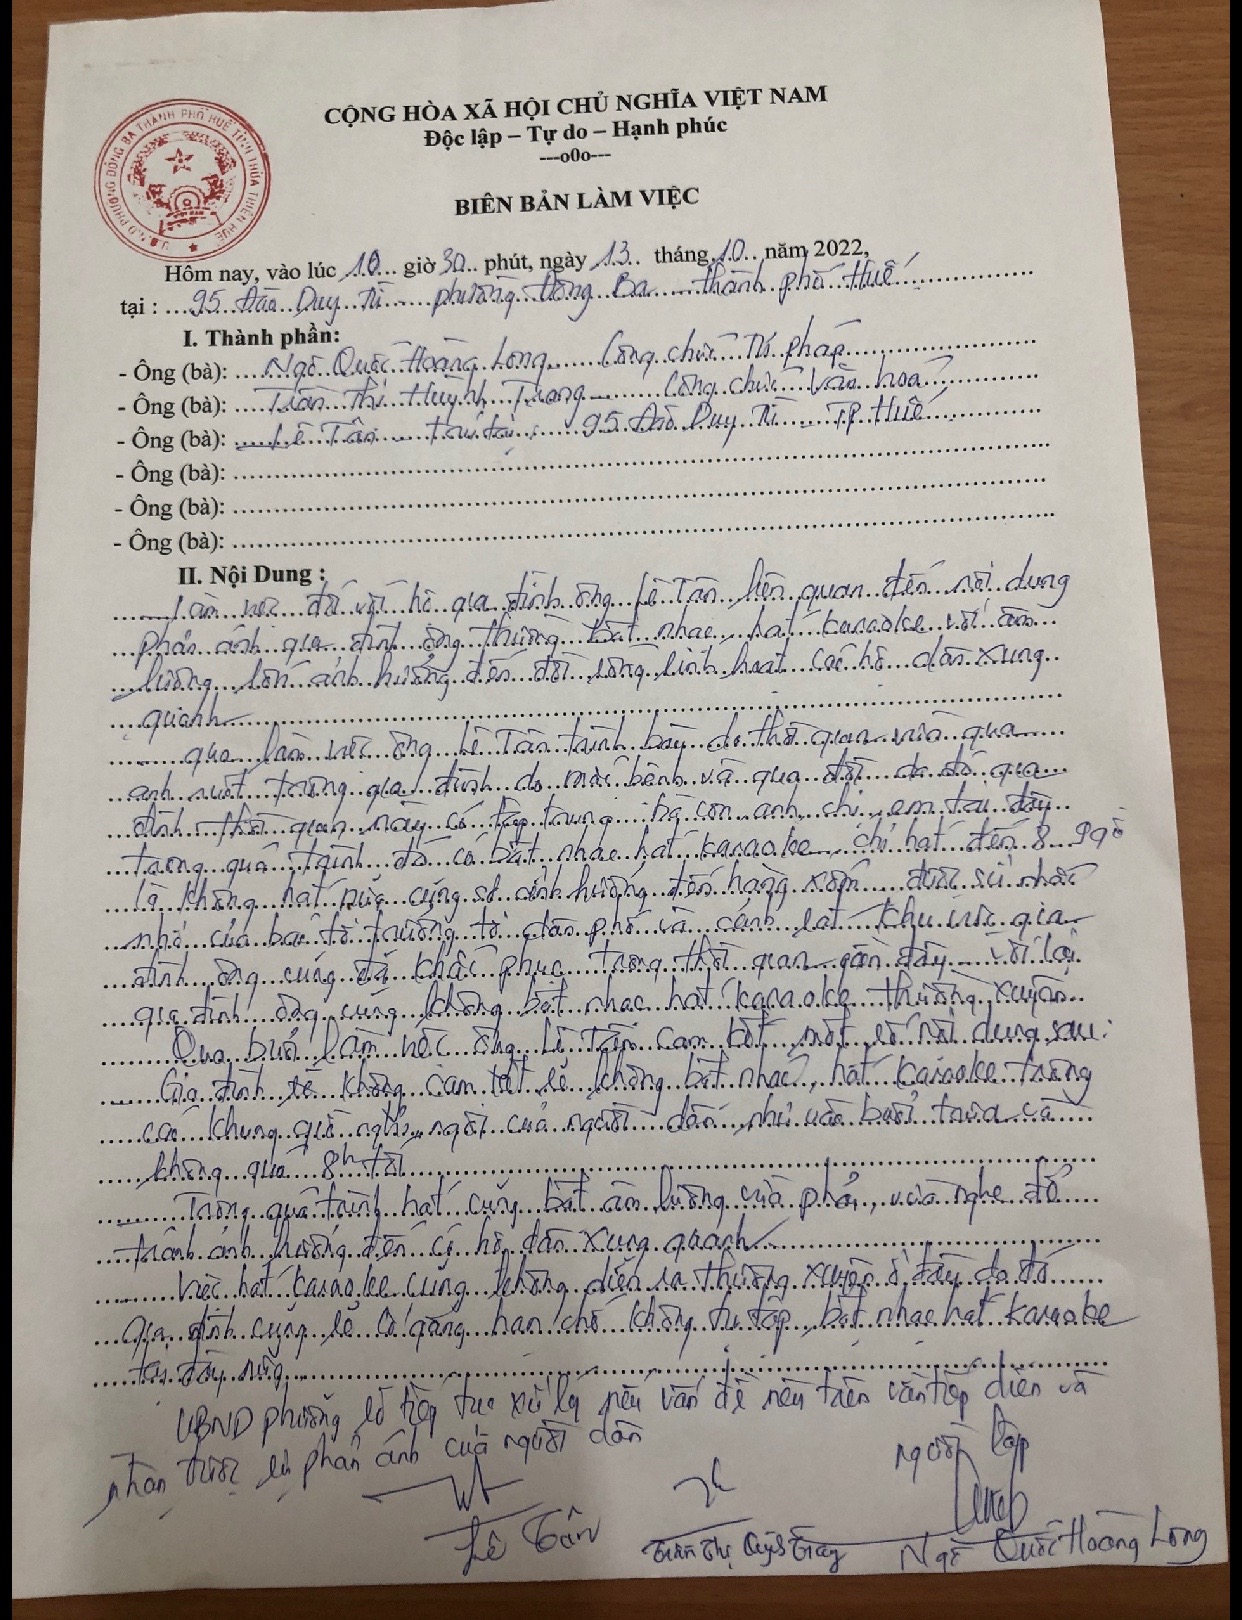 U.B.N.D PHƯỜNG ĐÔNG BA THÀNH PHỐ HUẾ TỈNH THỪA THIÊN HUẾ
CỘNG HÒA XÃ HỘI CHỦ NGHĨA VIỆT NAM
Độc lập – Tự do – Hạnh phúc
---o0o---
BIÊN BẢN LÀM VIỆC
Hôm nay, vào lúc 10 giờ 30 phút, ngày 13 tháng 10 năm 2022,
tại : 95 Đào Duy Từ phường Đông Ba thành phố Huế
I. Thành phần:
- Ông (bà): Ngô Quốc Hoàng Long Công chức Tư pháp
- Ông (bà): Trần Thị Huỳnh Trang Công chức Văn hoá
- Ông (bà): Lê Tân trú tại : 95 Đào Duy Từ TP Huế
- Ông (bà):
- Ông (bà):
- Ông (bà):
II. Nội Dung :
Làm việc đối với hộ gia đình ông Lê Tân liên quan đến nội dung
phản ánh gia đình ông thường bật nhạc, hát karaoke với âm
lượng lớn ảnh hưởng đến đời sống sinh hoạt các hộ dân xung
quanh
Qua làm việc ông Lê Tân trình bày do thời gian vừa qua
anh ruột trong gia đình do mắc bệnh và qua đời do đó gia
đình thời gian này có tập trung bà con anh, chị, em tại đây
trong quá trình đó có bật nhạc hát karaoke, chỉ hát đến 8, 9 giờ
là không hát nữa cũng sợ ảnh hưởng đến hàng xóm dưới sự nhắc
nhở của bác tổ trưởng tổ dân phố và cảnh sát khu vực gia
đình ông cũng đã khắc phục trong thời gian gần đây với lại
gia đình ông cũng không bật nhạc hát karaoke thường xuyên
Qua buổi làm việc ông Lê Tân cam kết một số nội dung sau:
Gia đình tôi không cam kết sẽ không bật nhạc, hát karaoke trong
các khung giờ nghỉ ngơi của người dân như vào buổi trưa và
không quá 8h tối
Trong quá trình hát cũng bật âm lượng vừa phải, vừa nghe để
tránh ảnh hưởng đến các hộ dân xung quanh
Việc hát karaoke cũng không diễn ra thường xuyên ở đây do đó
gia đình cũng sẽ cố gắng hạn chế không tụ tập, bật nhạc hát karaoke
tại đây nữa
UBND phường sẽ tiếp tục xử lý nếu vấn đề nêu trên vẫn tiếp diễn và
nhận được sự phản ánh của người dân
người lập
Lê Tân
Trần Thị Huỳnh Trang
Ngô Quốc Hoàng Long